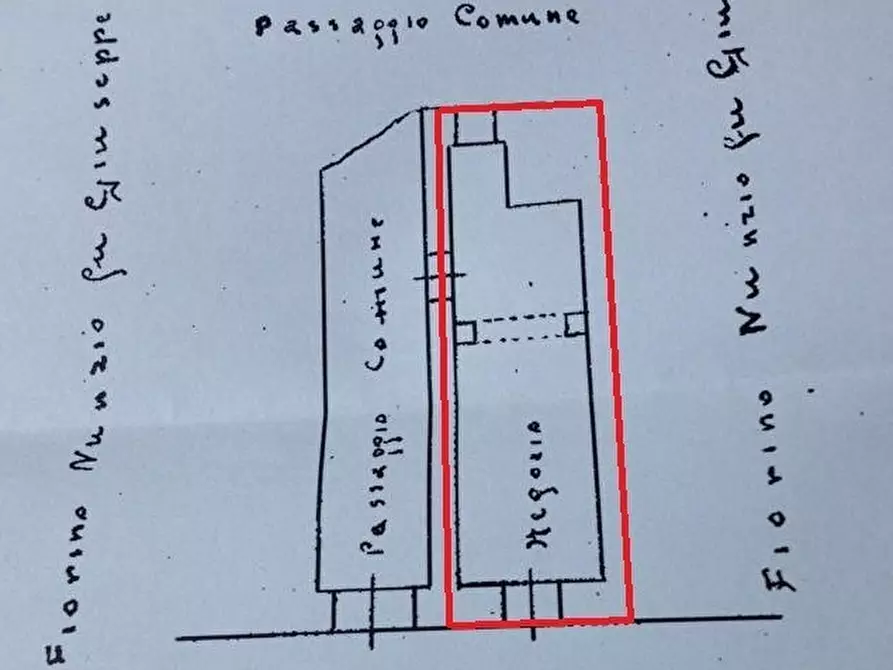 Passaggio Comune
Fiorino Nunzio fu Giuseppe
Passaggio Comune
Negozio
Fiorino Nunzio fu Giu